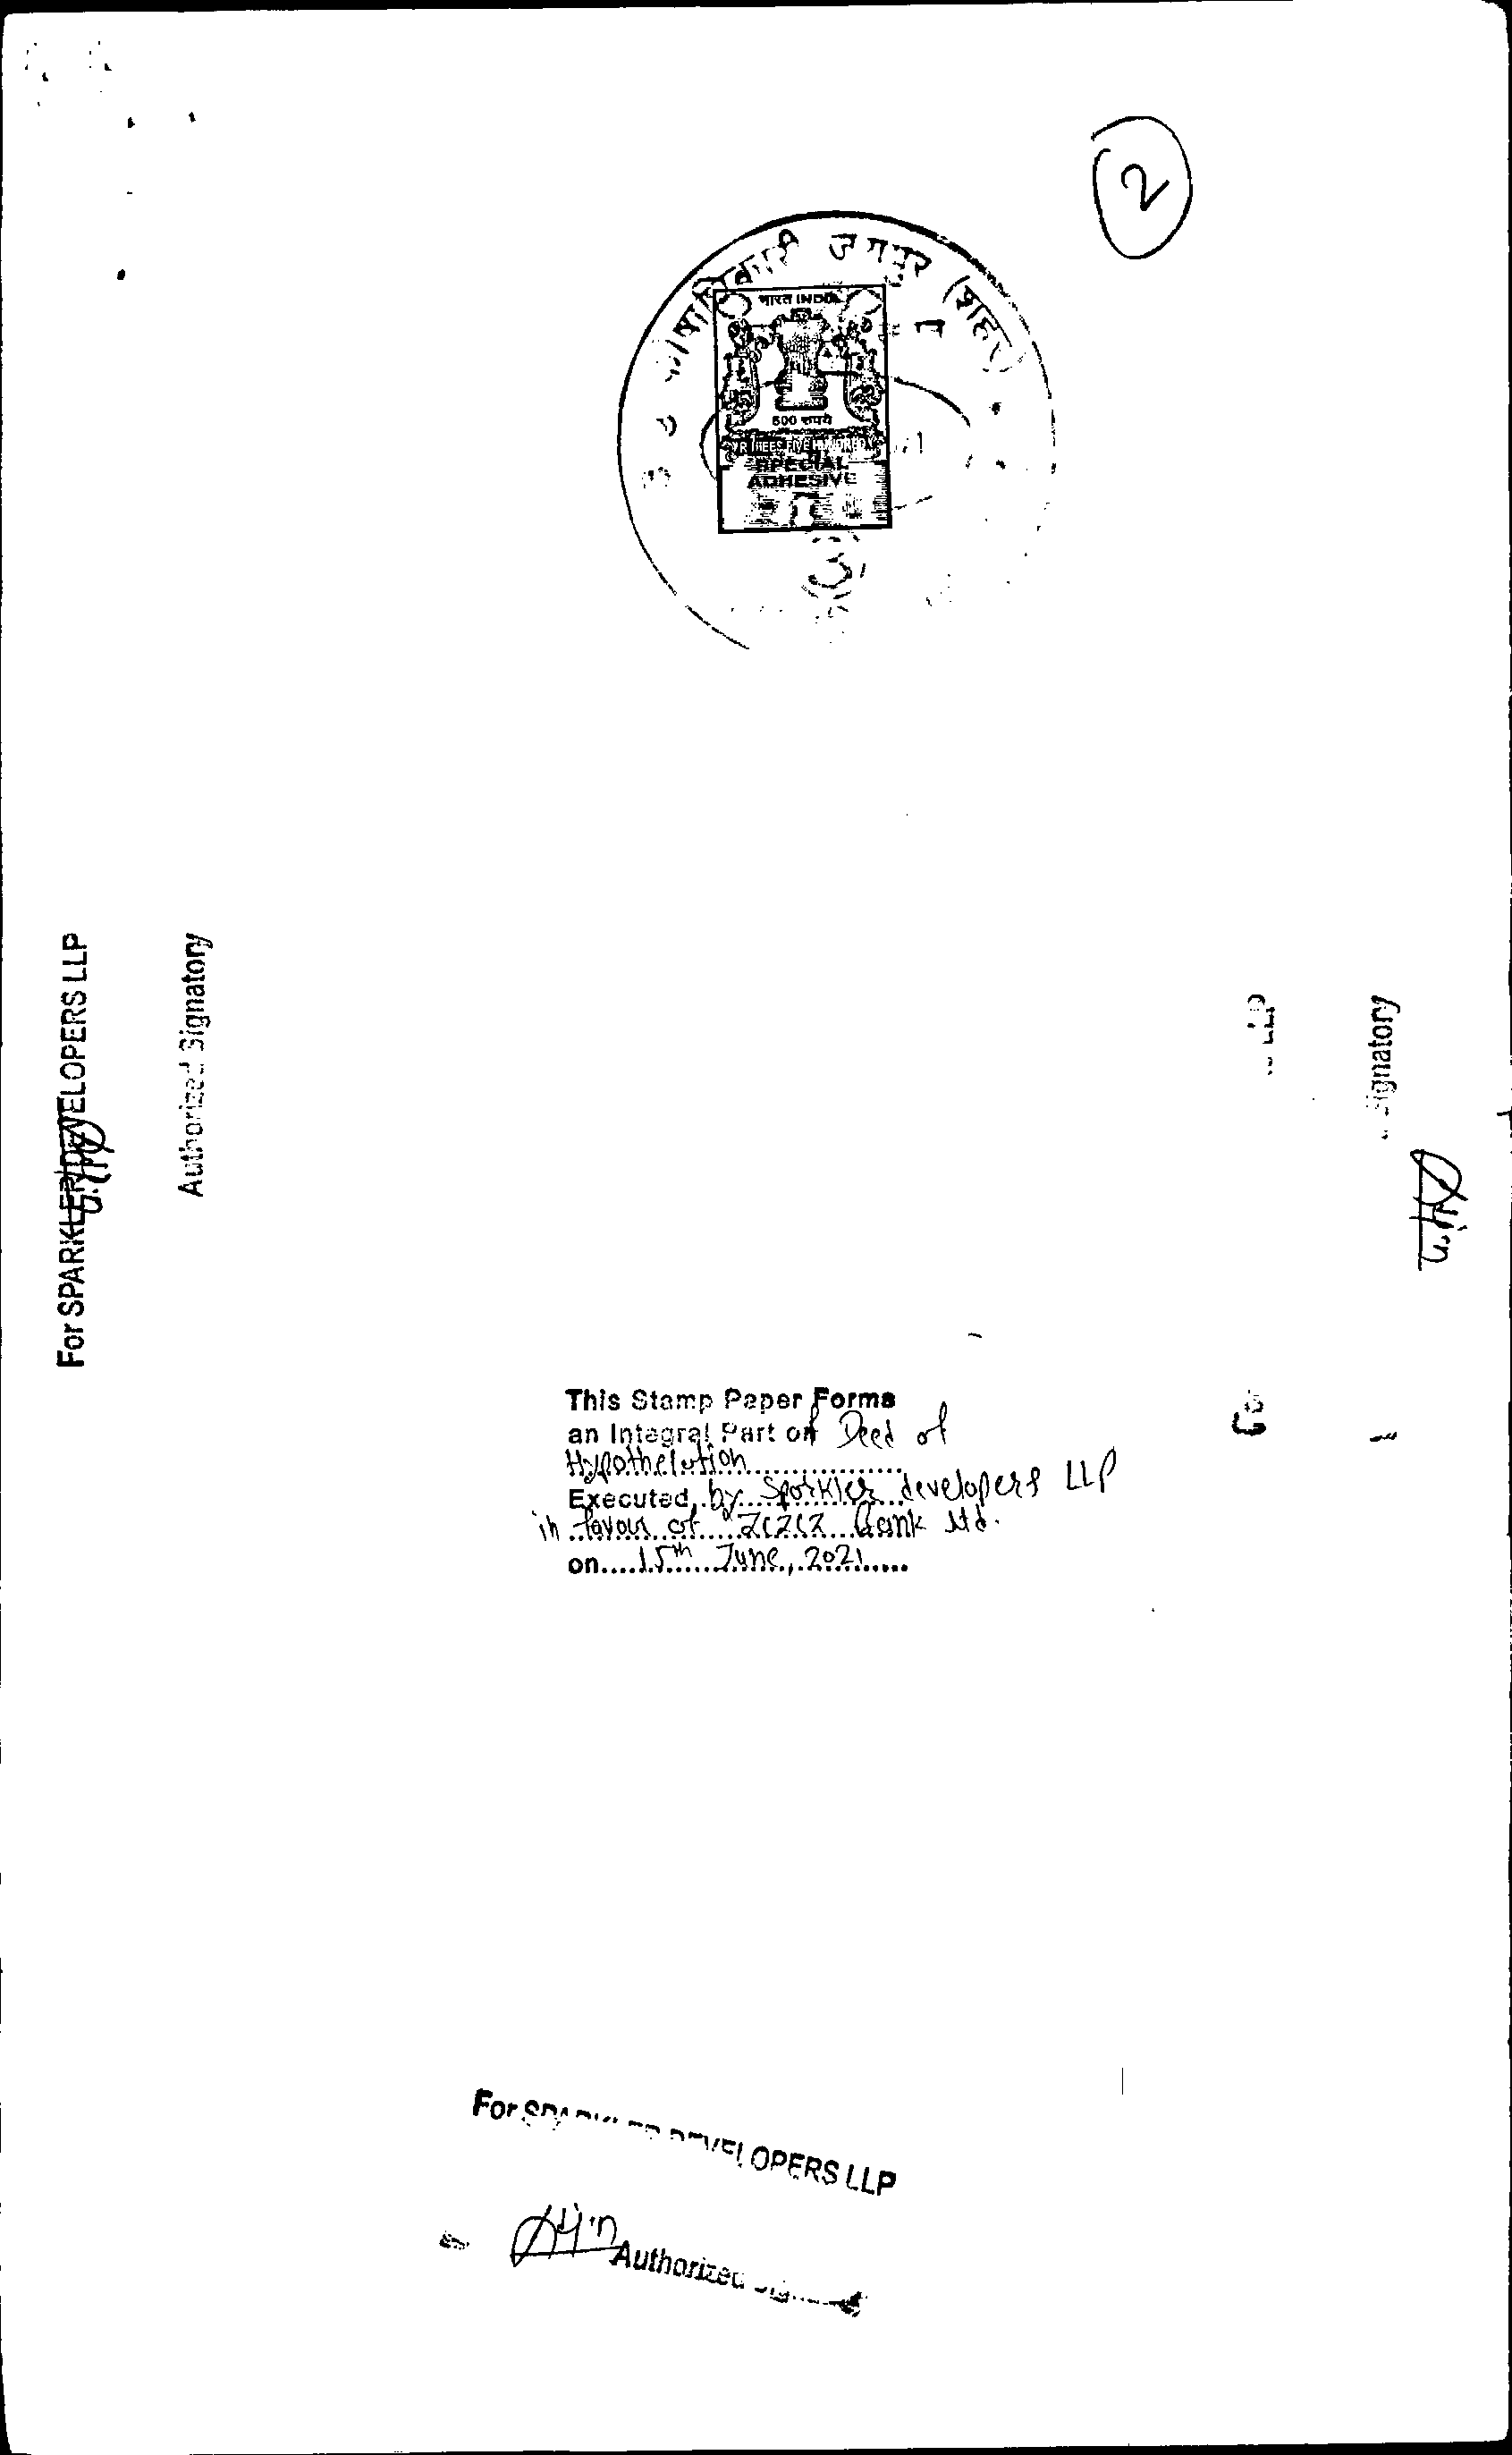 2
जयपुर (शहर)
भारत INDIA
500 रुपये
RUPEES FIVE HUNDRED
SPECIAL
ADHESIVE
For SPARKLER DEVELOPERS LLP
Authorized Signatory
LLP
Signatory
This Stamp Paper Forms
an Integral Part of Deed of
Hypothelution
Executed by Sparkler developers LLP
in favour of ICICI Bank Ltd.
on.....15th June, 2021......
For SPARKLER DEVELOPERS LLP
Authorized